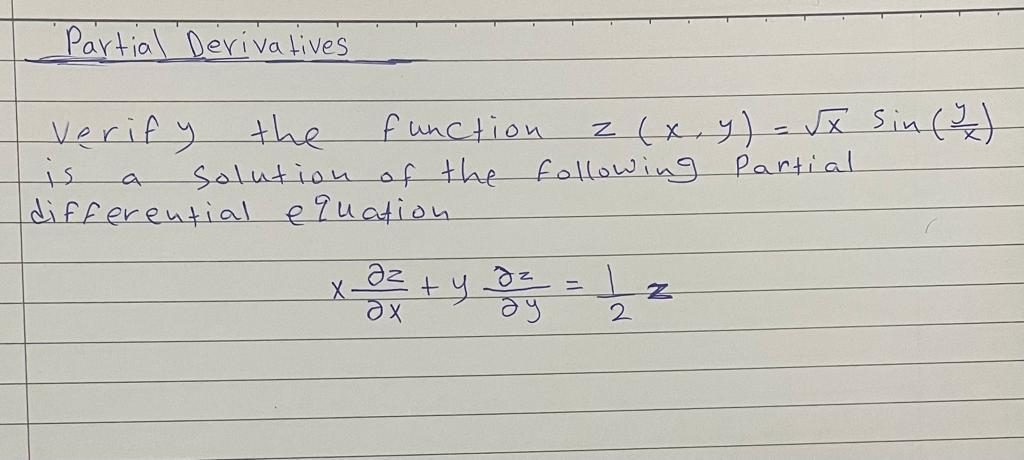 Partial Derivatives
Verify the function z(x,y) = √x sin(y/x)
is a solution of the following Partial
differential equation
x ∂z/∂x + y ∂z/∂y = 1/2 z